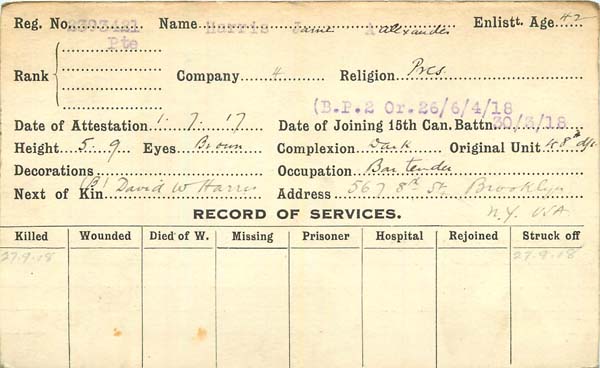 Reg. No. 2393421 Name Harris Jame Alexander Enlistt. Age 42
Pte
Rank Company 4 Religion Pres
(B.P.2 Or.26/6/4/18
Date of Attestation 1. 7. 17 Date of Joining 15th Can. Battn. 30/3/18
Height 5 9 Eyes Brown Complexion Dark Original Unit 48th
Decorations Occupation Bar tender
Next of Kin (B) David W Harris Address 567 8th St, Brooklyn
RECORD OF SERVICES. N.Y. USA
Killed Wounded Died of W. Missing Prisoner Hospital Rejoined Struck off
27.9.18 27.9.18